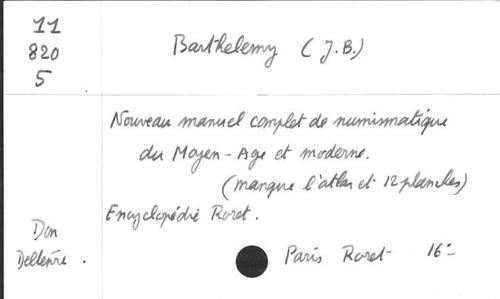 11
820
5
Barthelemy (J.B.)
Nouveau manuel complet de numismatique
du Moyen-Age et moderne.
(manque l'atlas et 12 planches)
Encyclopédie Roret.
Don
Paris Roret 16: